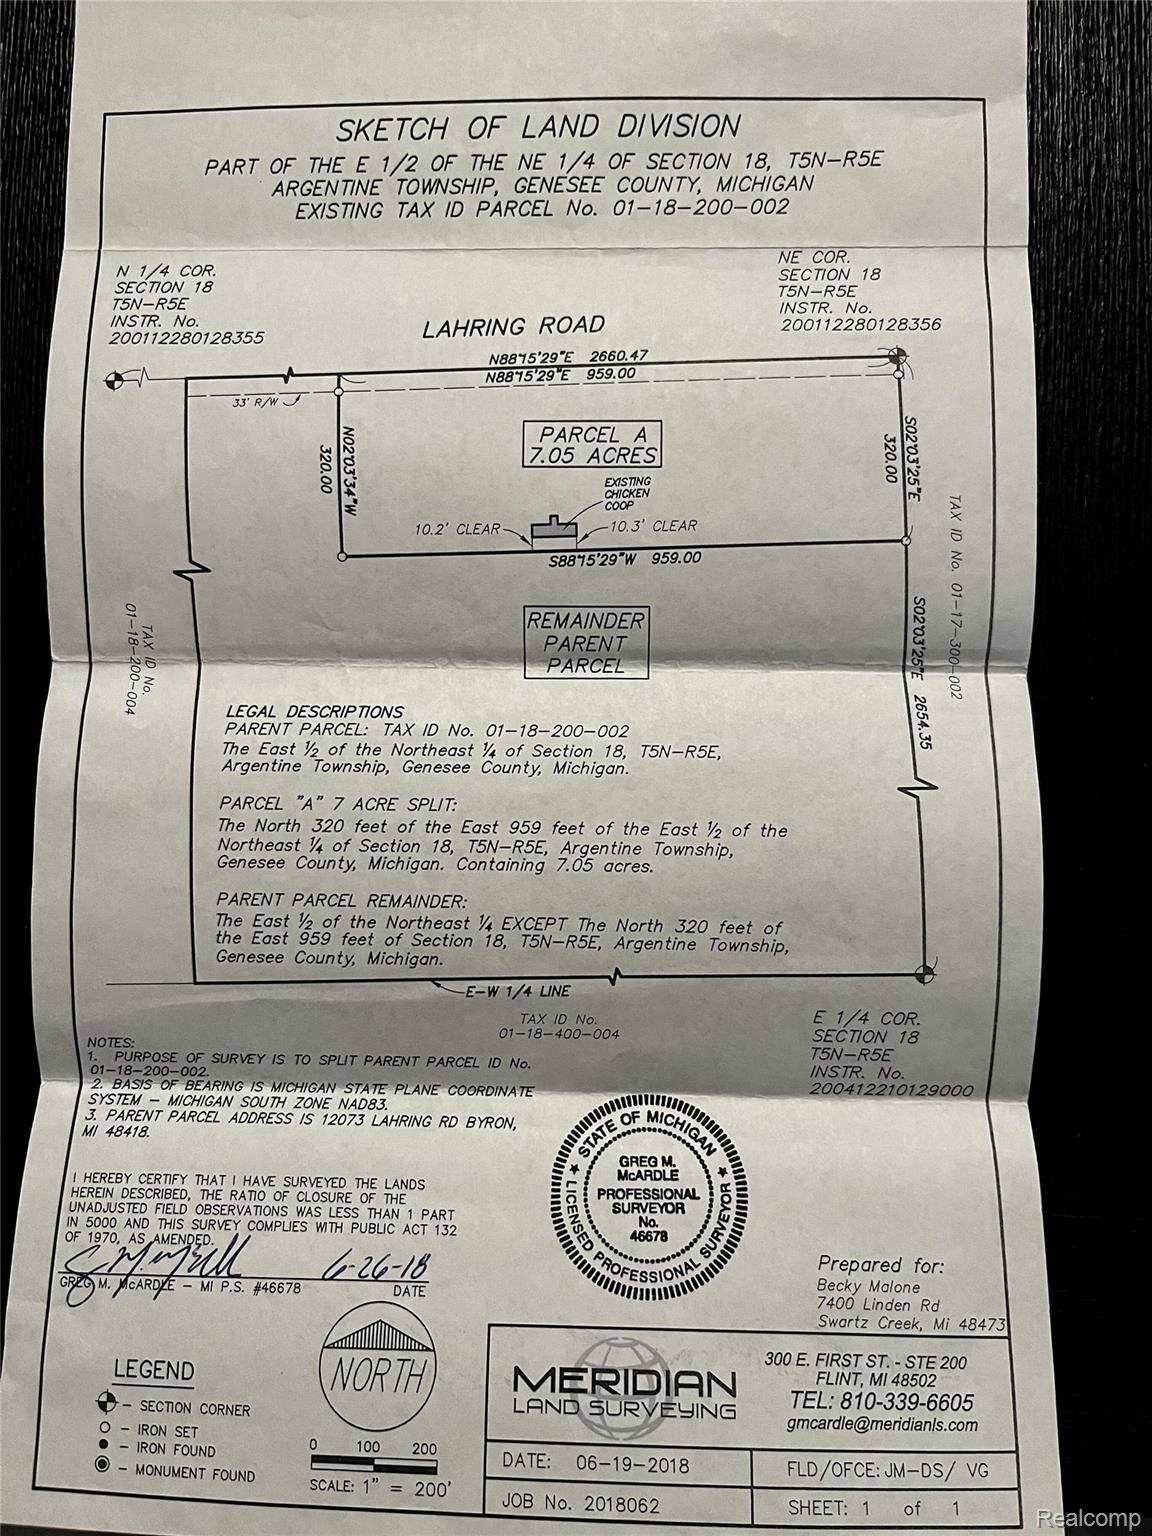 SKETCH OF LAND DIVISION
PART OF THE E 1/2 OF THE NE 1/4 OF SECTION 18, T5N-R5E
ARGENTINE TOWNSHIP, GENESEE COUNTY, MICHIGAN
EXISTING TAX ID PARCEL No. 01-18-200-002
N 1/4 COR.
SECTION 18
T5N-R5E
INSTR. No.
200112280128355
NE COR.
SECTION 18
T5N-R5E
INSTR. No.
200112280128356
LAHRING ROAD
N88°15'29"E 2660.47
N88°15'29"E 959.00
33' R/W
N02°03'34"W
320.00
S02°03'25"E
320.00
PARCEL A
7.05 ACRES
EXISTING
CHICKEN
COOP
10.2' CLEAR
10.3' CLEAR
S88°15'29"W 959.00
TAX ID No. 01-17-300-002
S02°03'25"E 2654.35
TAX ID No.
01-18-200-004
REMAINDER
PARENT
PARCEL
LEGAL DESCRIPTIONS
PARENT PARCEL: TAX ID No. 01-18-200-002
The East ½ of the Northeast ¼ of Section 18, T5N-R5E,
Argentine Township, Genesee County, Michigan.
PARCEL "A" 7 ACRE SPLIT:
The North 320 feet of the East 959 feet of the East ½ of the
Northeast ¼ of Section 18, T5N-R5E, Argentine Township,
Genesee County, Michigan. Containing 7.05 acres.
PARENT PARCEL REMAINDER:
The East ½ of the Northeast ¼ EXCEPT The North 320 feet of
the East 959 feet of Section 18, T5N-R5E, Argentine Township,
Genesee County, Michigan.
E-W 1/4 LINE
TAX ID No.
01-18-400-004
E 1/4 COR.
SECTION 18
T5N-R5E
INSTR. No.
200412210129000
NOTES:
1. PURPOSE OF SURVEY IS TO SPLIT PARENT PARCEL ID No.
01-18-200-002.
2. BASIS OF BEARING IS MICHIGAN STATE PLANE COORDINATE
SYSTEM - MICHIGAN SOUTH ZONE NAD83.
3. PARENT PARCEL ADDRESS IS 12073 LAHRING RD BYRON,
MI 48418.
I HEREBY CERTIFY THAT I HAVE SURVEYED THE LANDS
HEREIN DESCRIBED, THE RATIO OF CLOSURE OF THE
UNADJUSTED FIELD OBSERVATIONS WAS LESS THAN 1 PART
IN 5000 AND THIS SURVEY COMPLIES WITH PUBLIC ACT 132
OF 1970, AS AMENDED.
6-26-18
GREG M. McARDLE - MI P.S. #46678 DATE
STATE OF MICHIGAN
GREG M.
McARDLE
PROFESSIONAL
SURVEYOR
No.
46678
LICENSED PROFESSIONAL SURVEYOR
Prepared for:
Becky Malone
7400 Linden Rd
Swartz Creek, Mi 48473
LEGEND
- SECTION CORNER
- IRON SET
- IRON FOUND
- MONUMENT FOUND
NORTH
0 100 200
SCALE: 1" = 200'
MERIDIAN
LAND SURVEYING
300 E. FIRST ST. - STE 200
FLINT, MI 48502
TEL: 810-339-6605
gmcardle@meridianls.com
DATE: 06-19-2018
FLD/OFCE: JM-DS/ VG
JOB No. 2018062
SHEET: 1 of 1
Realcomp